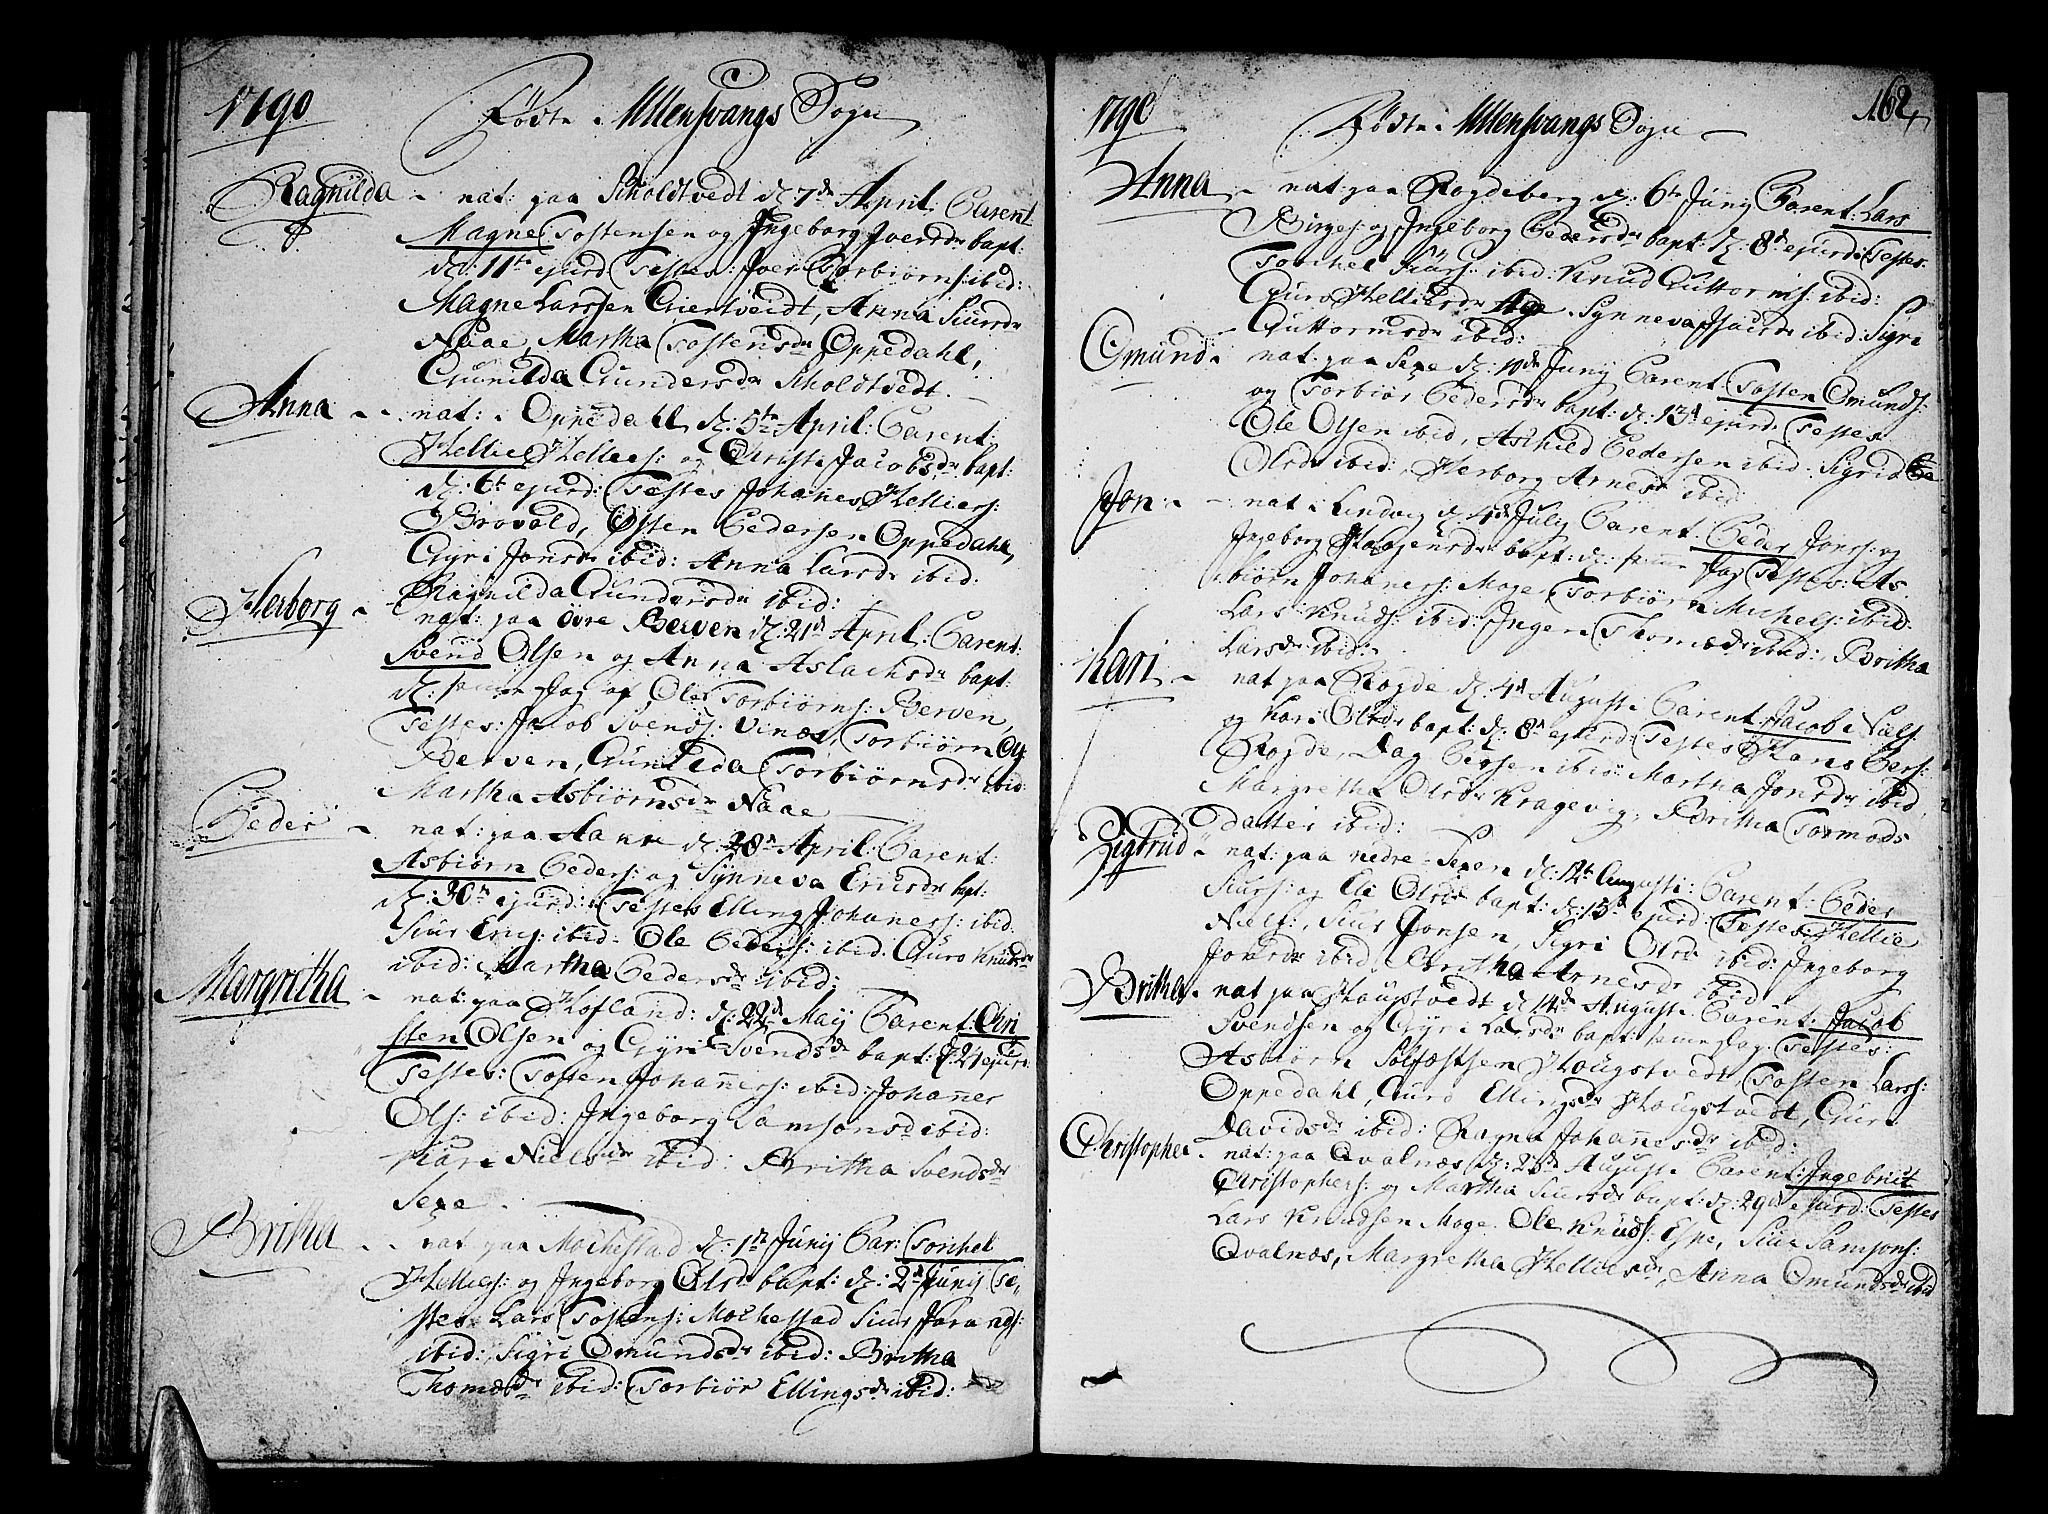 1790 Fødte i Ullensvangs Sogn
Ragnilda - nat: paa Skoldtvedt d: 7de April. Parent:
Magne Tostensen og Ingeborg Iversdr bapt:
d: 11te ejusd Testes: Iver Torbiørns: ibid:
Magne Larssen Giertveidt, Anna Siursdr
Naae, Martha Tostensdr Oppedahl,
Gunilda Gundersdr Skoldtvedt. -
Anna - nat: i Oppedahl d: 5te April: Parent:
Hellie Hellies: og Christi Jacobsdr bapt:
d: 6te ejusd: Testes Johannes Hellies:
Brovold, Osten Pedersen Oppedahl,
Gyri Jonsdr ibid: Anna Larsdr ibid:
Ragnilda Gundersdr ibid:
Herborg - nat: paa øvre Berven d: 21de April. Parent:
Svend Olsen og Anna Aslachsdr bapt:
d: samme Dag af Ole Torbiørns: Berven,
Testes: Jacob Svends: Vinæs, Torbiørn Ols:
Berven, Gunilda Torbiørnsdr ibid:
Martha Asbiørnsdr Naae
Peder - nat: paa Aarre d: 28de April: Parent:
Asbiørn Peders: og Synneva Ericsdr bapt:
d: 30te ejusd: Testes Elling Johannes: ibid:
Siur Erics: ibid: Ole Peders: ibid: Guro Knudsdr
ibid: Martha Pedersdr ibid:
Margritha - nat: paa Hofland: d: 22de Maij Parent: Chri
sten Olsen og Gyri Svendsdr bapt: d: 24 ejusd:
Testes: Tosten Johannes: ibid: Johannes
Ols: ibid: Ingeborg Samsonsdr ibid:
Kari Nielsdr ibid: Britha Svendsdr
Sexe. -
Britha - nat paa Mochestad d: 1te Junij Par: Torchel
Hellies: og Ingeborg Olsdr bapt: d: 2de Junij Te,
stes Lars Tostens: Mochestad Siur Haralds:
ibid: Sigri Omundsdr ibid: Britha
Thomædr ibid: Torbiør Ellingsdr ibid:
1790 Fødte i Ullensvangs Sogn - 162
Anna - nat: paa Rogdeberg d: 6te Junij Parent: Lars
Birges: og Ingeborg Pedersdr bapt: d: 8de ejusd: Testes:
Torchel Siurs: ibid: Knud Guttorms: ibid:
Guro Helliesdr Age Synneva Isacsdr ibid: Sigri
Guttormsdr ibid:
Omund - nat: paa Sexe d: 10de Junij Parent: Tosten Omunds:
og Torbiør Pedersdr bapt: d: 13de ejusd: Testes:
Ole Olsen ibid, Aschild Pedersen ibid: Sigrid
Olsdr ibid:, Herborg Arnesdr ibid
Jon - nat i Lindvig d: 4de July Parent: Peder Jons: og
Ingeborg Haagensdr bapt: d: samme Dag Testes: As,
biørn Johannes: Moge, Torbiørn Michels: ibid:
Lars Knuds: ibid: Inger Thomædr ibid: Britha
Larsdr ibid:
Kari - nat paa Rogde d: 4de Augusti Parent: Jacob Niels:
og Kari Olsdr bapt: d: 8de ejusd: Testes Hans Pers:
Rogde, Dag Peersen ibid: Martha Jonsdr ibid
Margretha Olsdr Kragevig, Britha Tormods
datter ibid:
Sigtrud - nat: paa nedre Sexe d: 12te Augusti: Parent: Peder
Siurs: og Eli Olsdr bapt: d: 15de ejusd: Testes Hellie
Niels:, Siur Jonsen, Sigri Olsdr ibid: Ingeborg
Jonsdr ibid, Britha Arnesdr ibid
Britha - nat paa Haugstvedt d: 14de Augusti Parent: Jacob
Svendsen og Gyri Larsdr bapt: samme Dag. Testes:
Asbiørn Solfæstsen Haugstvedt, Tosten Lars:
Oppedahl, Gurd Ellingsdr Haugstvedt, Guro
Davidsdr ibid: Ragna Johannesdr ibid:
Christopher - nat: paa Qvalnæs d: 28de Augusti Parent: Ingebrit
Christophers: og Martha Siursdr bapt: d: 29de ejusd: Testes
Lars Knudsen Moge. Ole Knuds: Espe, Siur Samsons:
Qvalnæs, Margretha Helliesdr, Anna Omundsdr ibid